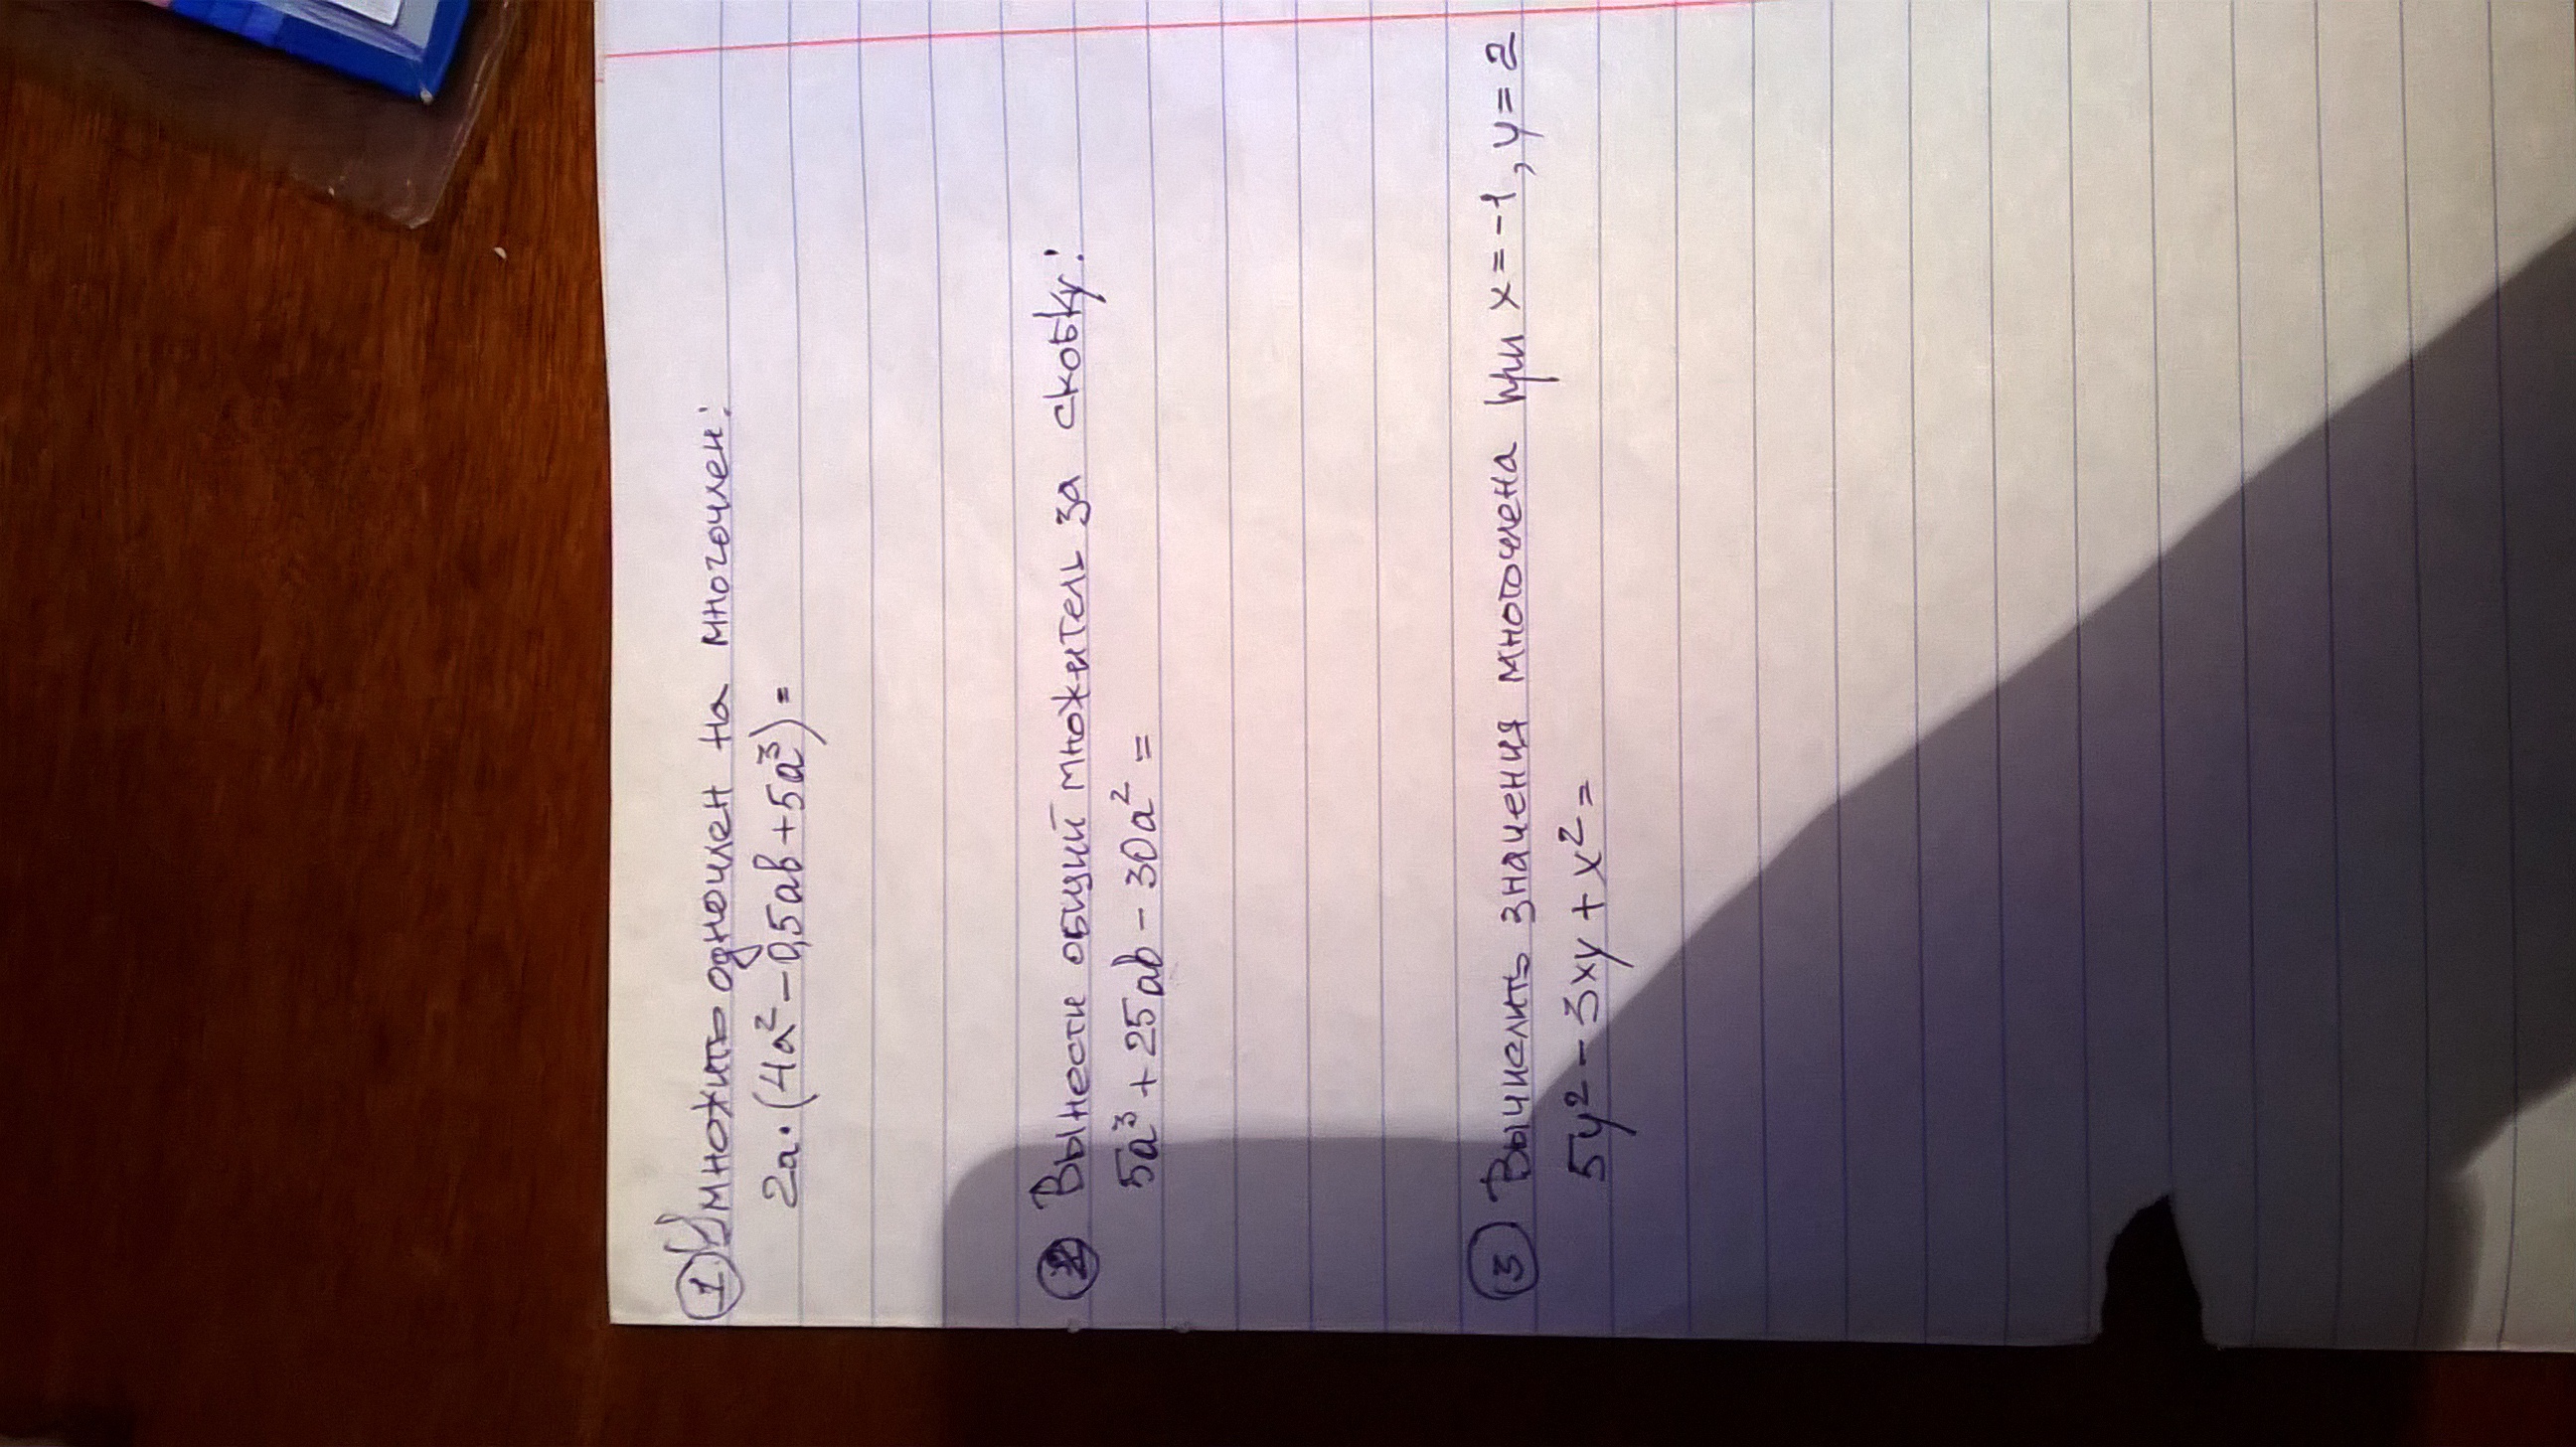 ① Умножить одночлен на многочлен:
2a·(4a² - 0,5ab + 5a³) =
② Вынести общий множитель за скобку:
5a³ + 25ab - 30a² =
③ Вычислить значения многочлена при x = -1, y = 2
5y² - 3xy + x² =